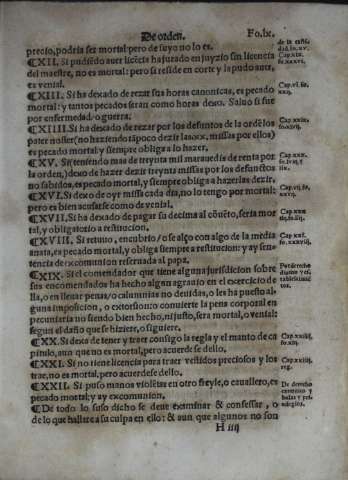 De orden. Fo.lx.
precio, podria ser mortal: pero de suyo no lo es.
¶XII. Si pudiẽdo auer licẽcia ha jurado en juyzio sin licencia
del maestre, no es mortal: pero si reside en corte y la pudo auer,
es venial.
¶XIII. Si ha dexado de rezar sus horas canonicas, es pecado
mortal: y tantos pecados seran como horas dexo. Saluo si fue
por enfermedad, o guerra.
¶XIIII. Si ha dexado de rezar por los defuntos de la ordẽ los
pater noster (no haziendo tãpoco dezir las missas por ellos)
es pecado mortal y siempre obliga a lo hazer.
¶XV. Si (teniendo mas de treynta mil marauedis de renta por
la orden,) dexo de hazer dezir treynta missas por los defunctos
no sabidos, es pecado mortal, y siempre obliga a hazerlas dezir.
¶XVI. Si dexo de oyr missa cada dia, no lo tengo por mortal:
pero es bien acusarse como de venial.
¶XVII. Si ha dexado de pagar su decima al cõuẽto, seria mor
tal, y obligatorio a restitucion.
¶XVIII. Si retuuo, encubrio / o se alço con algo de la media
anata, es pecado mortal, y obliga siempre a restitucion: y ay sen-
tencia de excomunion reseruada al papa.
¶XIX. Si el comendador que tiene alguna jurisdicion sobre
sus encomendados ha hecho algun agrauio en el exercicio de
lla, o en lleuar penas / o calumnias no deuidas, o les ha puesto al
guna imposicion, o extorsion o conuierte la pena corporal en
pecuniaria no siendo bien hecho, ni justo, sera mortal, o venial:
segun el daño que se hiziere, o siguiere.
¶XX. Si dexa de tener y traer consigo la regla y el manto de ca
pitulo, aun que no es mortal, pero acuerdese dello.
¶XXI. Si no tiene licencia para traer vestidos preciosos y los
trae, no es mortal, pero acuerdese dello.
¶XXII. Si puso manos violẽtas en otro freyle, o cauallero, es
pecado mortal: y ay excomunion.
¶De todo lo suso dicho se deue examinar & confessar, o
de lo que hallare a su culpa en ello: & aun que algunos no son
H iiij